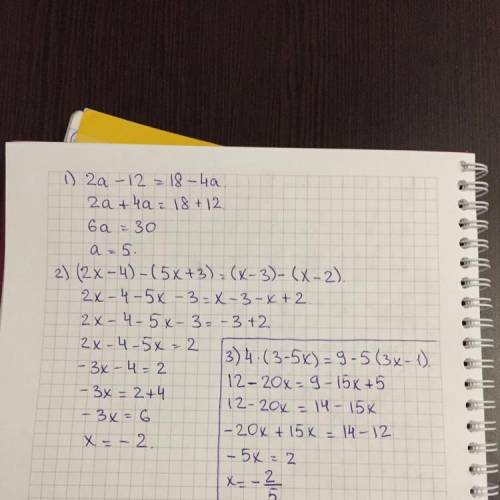 1) 2a - 12 = 18 - 4a.
2a + 4a = 18 + 12
6a = 30
a = 5.
2) (2x - 4) - (5x + 3) = (x - 3) - (x - 2).
2x - 4 - 5x - 3 = x - 3 - x + 2.
2x - 4 - 5x - 3 = -3 + 2.
2x - 4 - 5x = 2
-3x - 4 = 2
-3x = 2 + 4
-3x = 6
x = -2.
3) 4 · (3 - 5x) = 9 - 5 (3x - 1)
12 - 20x = 9 - 15x + 5
12 - 20x = 14 - 15x
-20x + 15x = 14 - 12
-5x = 2
x = -2/5